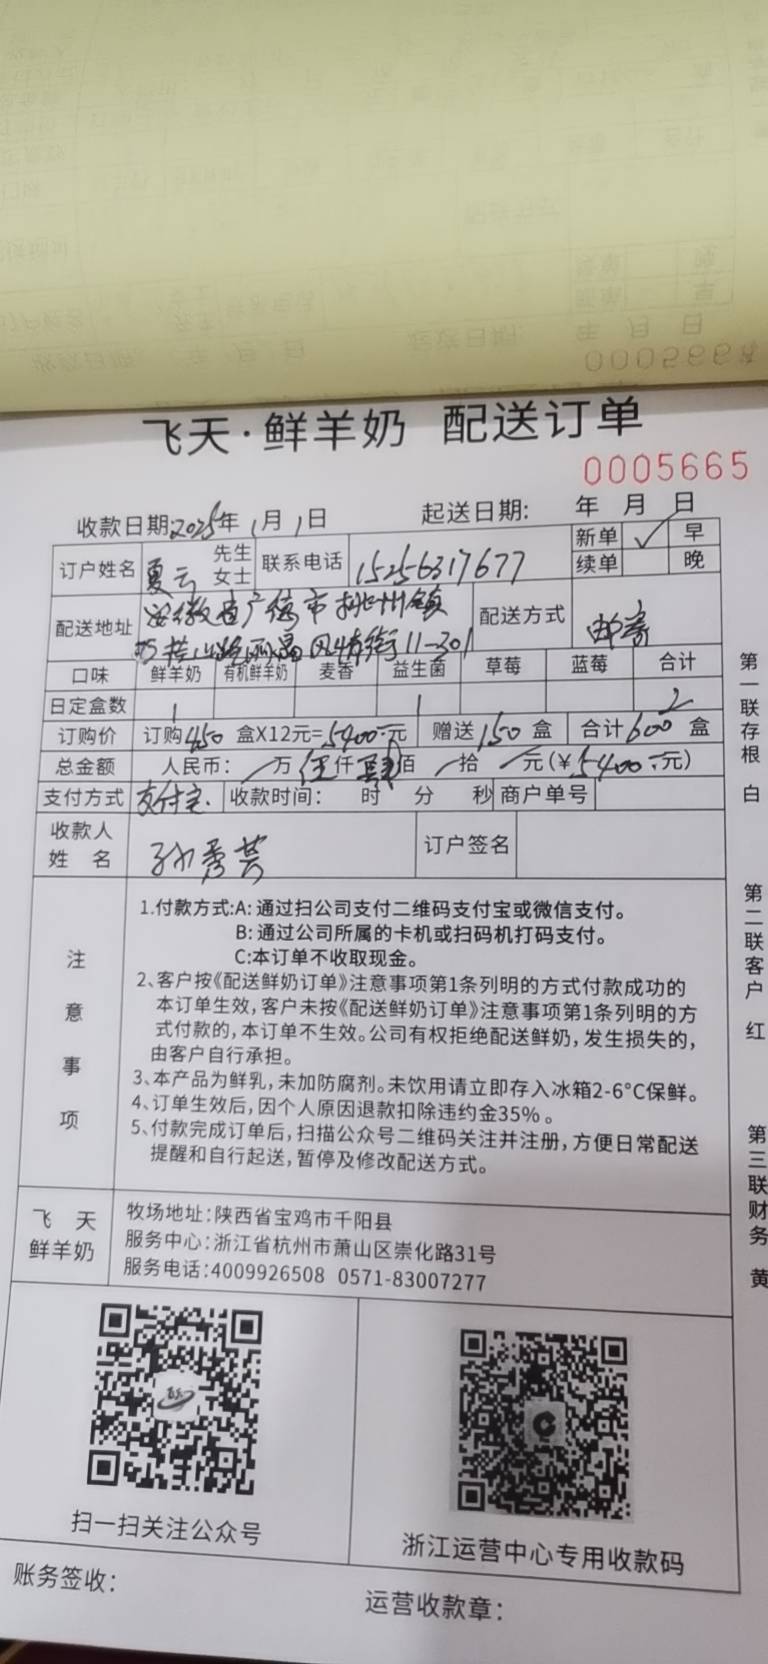 0005664
飞天·鲜羊奶 配送订单
0005665
收款日期:2025年1月1日 起送日期: 年 月 日
订户姓名 夏云 先生 女士 联系电话 15256317677 新单 ✓ 早
续单 晚
配送地址 安徽省广德市桃州镇
横山路丽晶风情街11-301 配送方式 邮寄
口味 鲜羊奶 有机鲜羊奶 麦香 益生菌 草莓 蓝莓 合计
日定盒数 1 1 2
订购价 订购450盒X12元=5400.元 赠送150盒 合计600盒
总金额 人民币: 万 伍仟 肆佰 拾 元(¥5400.元)
支付方式 支付宝. 收款时间: 时 分 秒 商户单号
收款人
姓 名 孙秀芸 订户签名
注意事项
1.付款方式:A: 通过扫公司支付二维码支付宝或微信支付。
B: 通过公司所属的卡机或扫码机打码支付。
C:本订单不收取现金。
2、客户按《配送鲜奶订单》注意事项第1条列明的方式付款成功的
本订单生效,客户未按《配送鲜奶订单》注意事项第1条列明的方
式付款的,本订单不生效。公司有权拒绝配送鲜奶,发生损失的,
由客户自行承担。
3、本产品为鲜乳,未加防腐剂。未饮用请立即存入冰箱2-6°C保鲜。
4、订单生效后,因个人原因退款扣除违约金35%。
5、付款完成订单后,扫描公众号二维码关注并注册,方便日常配送
提醒和自行起送,暂停及修改配送方式。
飞 天
鲜羊奶
牧场地址:陕西省宝鸡市千阳县
服务中心:浙江省杭州市萧山区崇化路31号
服务电话:4009926508 0571-83007277
扫一扫关注公众号
浙江运营中心专用收款码
账务签收:
运营收款章:
第一联存根 白
第二联客户 红
第三联财务 黄